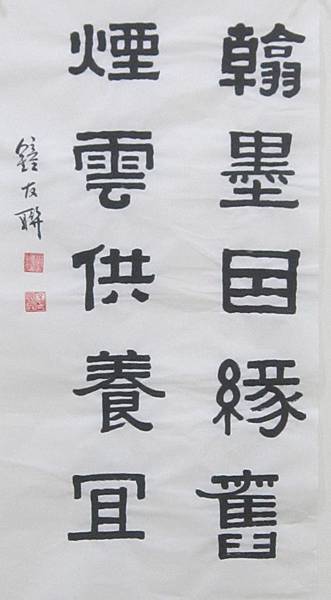 翰墨因緣舊
煙雲供養宜
友聯